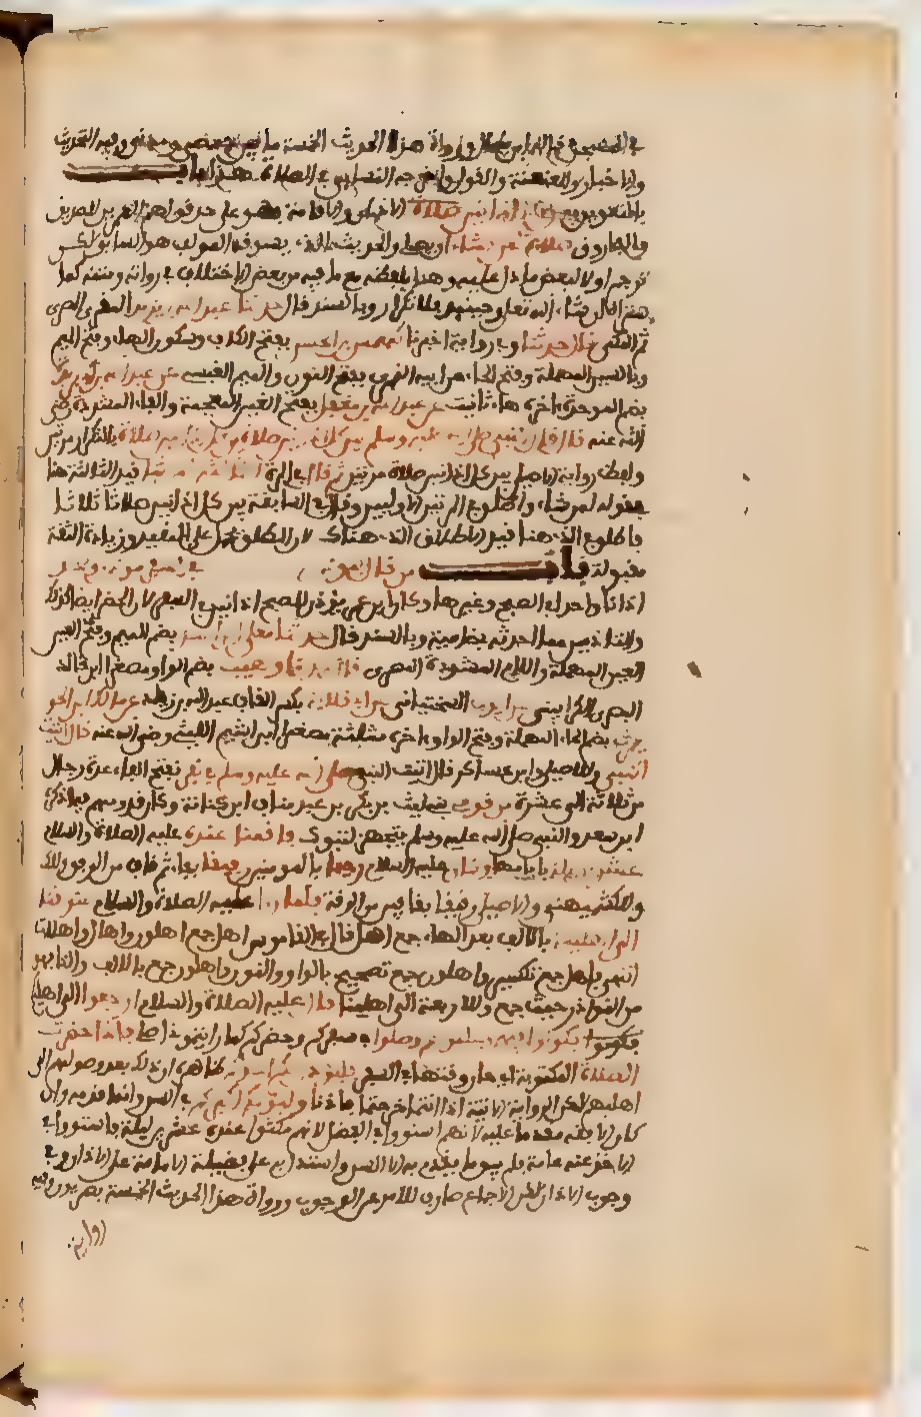 هذا الحديث الخمسة ما بين وفيه التحديث
والاخبار والعنعنة والقول واخرجه النسائي في الصلاة هذا باب
بالتنوين بين كل اذانين صلاة الاذان والاقامة فهو على حد قولهم العمرين للصديق
والفاروق صلاة لمن شاء
ترجم اولا لبعض ما دل عليه وهنا بلفظه مع ما فيه من بعض الاختلاف في رواته ومتنه كما
ان شاء الله تعالى وبالسند قال حدثنا عبد الله بن يزيد المقرئ البصري
ثم المكي قال حدثنا وفي رواية اخبرنا كهمس بن الحسن بفتح الكاف وسكون الهاء وفتح الميم
وبالسين المهملة وفتح الحاء من ابيه النمري بفتح النون والميم القيسي عن عبد الله بن بريدة
بضم الموحدة اخره هاء تانيث عن عبد الله بن مغفل بفتح الغين المعجمة والفاء المشددة رضي
الله عنه قال قال النبي صلى الله عليه وسلم بين كل اذانين صلاة بين كل اذانين صلاة بالتكرار مرتين
ولفظ رواية الاصيلي بين كل اذانين صلاة مرتين ثم قال في المرة الثالثة لمن شاء قيد الثالثة هنا
بقوله لمن شاء واطلق في المرتين الاوليين وقال في السابقة بين كل اذانين صلاة ثلاثا
فاطلق الذي هنا قيد الاطلاق الذي هناك لان المطلق يحمل على المقيد وزيادة الثقة
مقبولة باب من قال ليؤذن في السفر مؤذن واحد
اذانا واحدا في الصبح وغيرها وكان ابن عمر يؤذن للصبح اذانين في السفر لان الحضر ايضا كذلك
وبالسند قال حدثنا معلى بن اسد بضم الميم وفتح العين
العين المهملة واللام المشددة البصري قال حدثنا وهيب بضم الواو مصغرا ابن خالد
البصري الكرابيسي عن ايوب السختياني عن ابي قلابة بكسر القاف عبد الله بن زيد عن مالك بن الحو
يرث بضم الحاء المهملة وفتح الواو اخره مثلثة مصغرا ابن اشيم الليثي رضي الله عنه قال اتيت
النبي وللاصيلي وابن عساكر قال اتيت النبي صلى الله عليه وسلم في نفر بفتح الفاء عدة رجال
من ثلاثة الى عشرة من قومي بني ليث بن بكر بن عبد مناف ابن كنانة وكان قدومهم فيما ذكر
ابن سعد والنبي صلى الله عليه وسلم يتجهز لتبوك فاقمنا عنده عليه الصلاة والسلام
عشرين ليلة بايامها وكان عليه السلام رحيما بالمومنين رفيقا بفاء ثم قاف من الرفق وللك
وللكشميهني والاصيلي رقيقا بقافين من الرقة فلما راى عليه الصلاة والسلام شوقنا
الى اهالينا بالالف بعد الهاء جمع اهل قال في القاموس اهل جمع اهلون واهال واهلات
انتهى فاهل جمع تكسير واهلون جمع تصحيح بالواو والنون واهلون جمع بالالف والتا فهو
من النوادر حيث جمع وللاربعة الى اهلينا قال عليه الصلاة والسلام ارجعوا الى اهليكم
فكونوا فيهم وعلموهم وصلوا في سفركم وحضركم كما رايتموني اصلي فاذا حضرت
الصلاة المكتوبة اي حان وقتها في السفر فليؤذن لكم احدكم ظاهره ان ذلك بعد وصولهم الى
اهليهم لكن الرواية الاتية اذا انتما خرجتما فاذنا وليؤمكم اكبركم في السن وانما قدمه وان
كان الافقه مقدما عليه لانهم استووا في الفضل لانهم مكثوا عنده عشرين ليلة فاستووا في
الاخذ عنه عادة فلم يبق ما يقدم به الا السن واستدل به على فضيلة الامامة على الاذان وفي
وجوب الاذان لكن الاجماع صارف للامر عن الوجوب ورواة هذا الحديث الخمسة بصريون وفيه
رواية